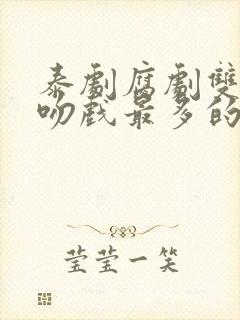 泰劇腐劇雙
吻戲最多的
莹莹一笑